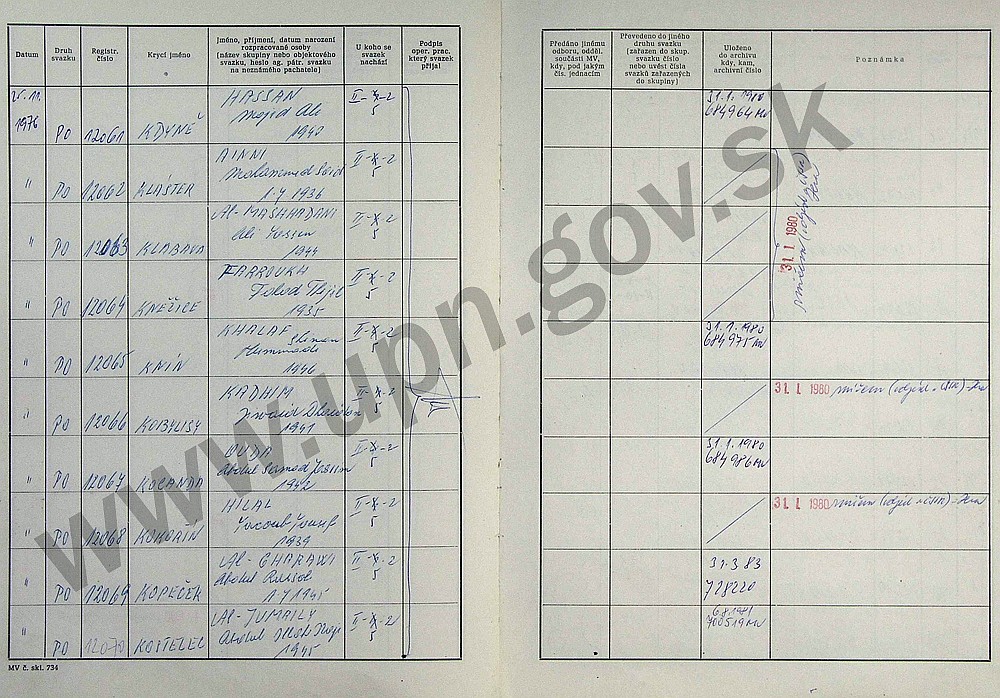 Datum
Druh
svazku
Registr.
číslo
Krycí jméno
Jméno, příjmení, datum narození
rozpracované osoby
(název skupiny nebo objektového
svazku, heslo ag. pátr. svazku
na neznámého pachatele)
U koho se
svazek
nachází
Podpis
oper. prac.
který svazek
přijal
Předáno jinému
odboru, odděl.
součásti MV,
kdy, pod jakým
čís. jednacím
Převedeno do jiného
druhu svazku
(zařazen do skup.
svazku číslo
nebo uvést čísla
svazků zařazených
do skupiny)
Uloženo
do archivu
kdy, kam,
archivní číslo
Poznámka
25. 11.
1976 PO 12061 KDYNĚ
HASSAN
Majid Ali
1942
II-X-2
5
31.1.1980
684964 MV
" PO 12062 KLÁŠTER
AINNI
Mohammed Said
1.7 1936
II-X-2
5
" PO 12063 KLABAVA
Al-MASHHADANI
Ali
1944
II-X-2
5
31. 1. 1980
" PO 12064 KNĚŽICE
FARROUKH
1935
II-X-2
5
" PO 12065 KNÍN
KHALAF
1946
II-X-2
5
31.1.1980
684975 MV
" PO 12066 KOBYLISY
KADHIM
1941
II-X-2
5
31. 1. 1980
" PO 12067 KOLANDA
OUDA
Abdul Samad Jassim
1942
II-X-2
5
31.1.1980
684986 MV
" PO 12068 KOKOŘÍN
HILAL
Yacoub Yousif
1939
II-X-2
5
31. 1. 1980
" PO 12069 KOPEČEK
Al-GHARAWI
Abdul Rassol
1.7 1945
II-X-2
5
31.3 83
728220
" PO 12070 KOSTELEC
Al-JUMAILY
1945
II-X-2
5
6.8.1981
700519 MV
MV č. skl. 734
www.upn.gov.sk